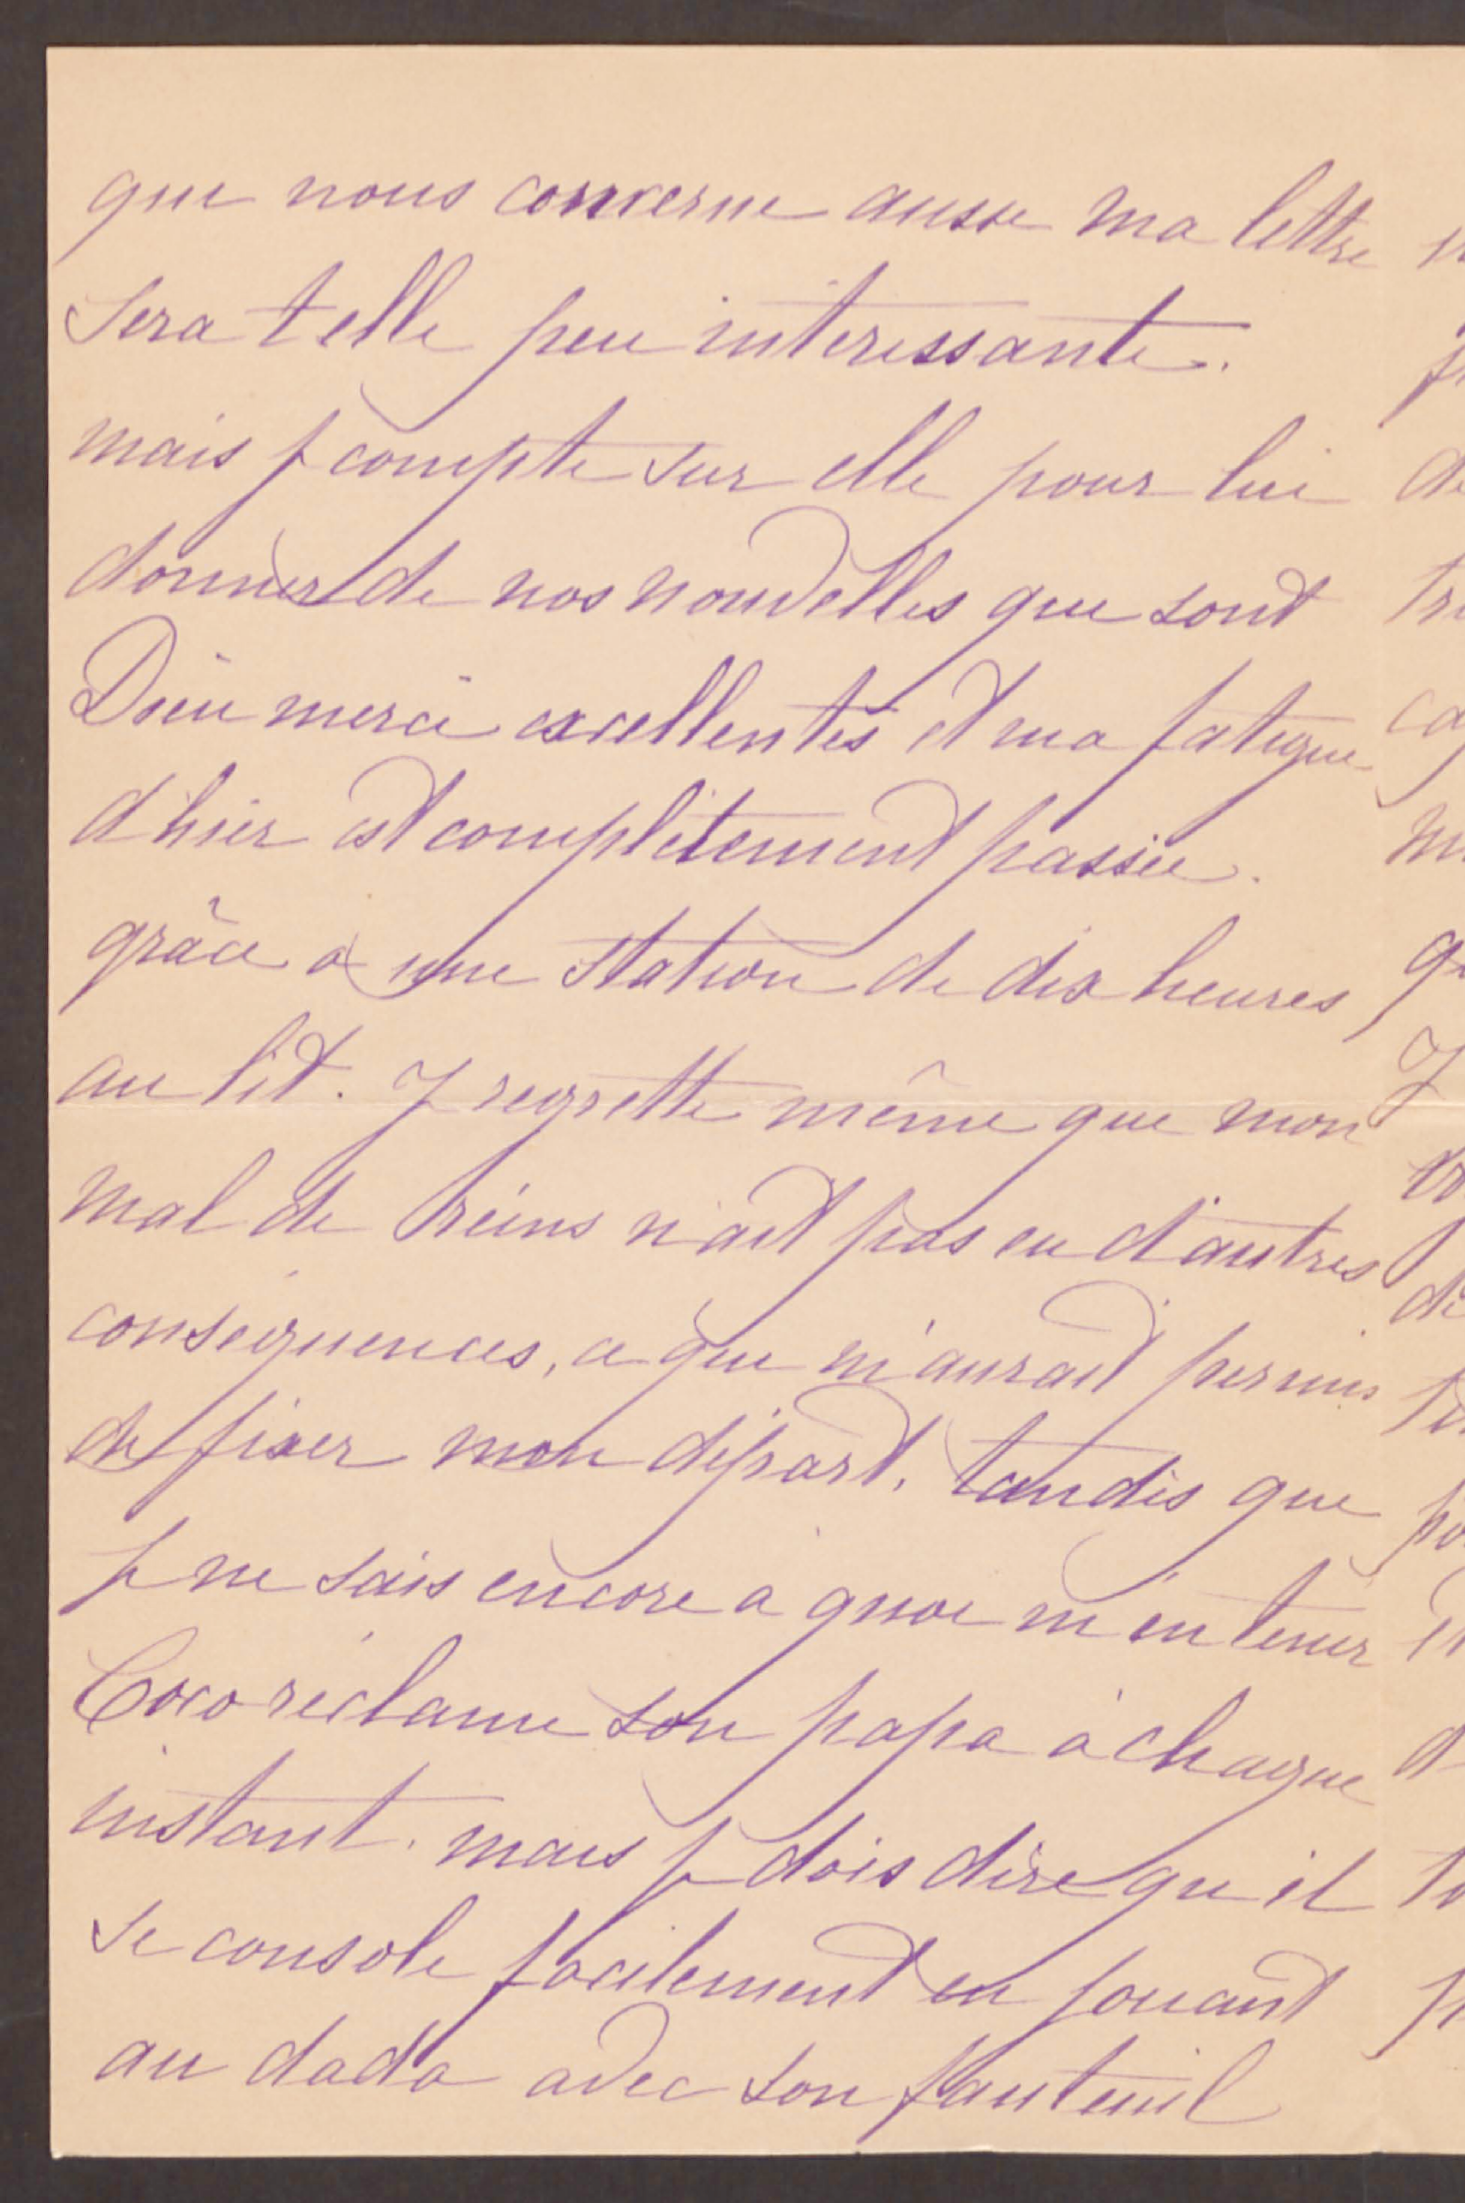 qui nous concerne aussi ma lettre
sera t elle peu interessante.
mais je compte sur elle pour lui
donner de nos nouvelles qui sont
Dieu merci excellentes et ma fatigue
d'hier est complètement passée.
grâce a une station de dix heures
au lit. Je regrette même que mon
mal de reins n'ait pas eu d'autres
consequences, ce qui m'aurait permis
de fixer mon départ, tandis que
je ne sais encore a quoi m'en tenir
Coco réclame son papa à chaque
instant. mais je dois dire qu'il
se console facilement en jouant
au dada avec son fauteuil